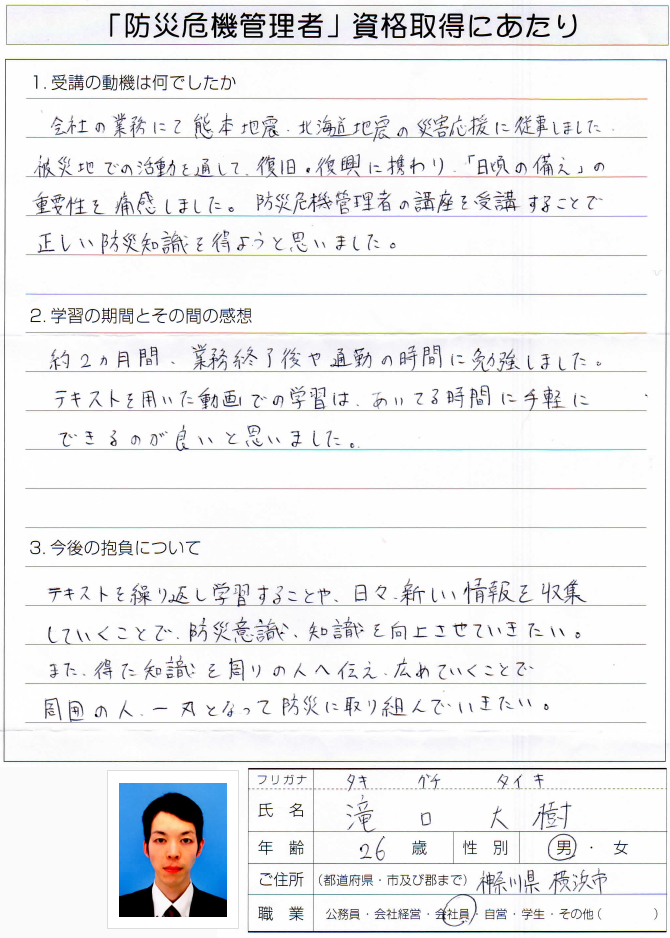 「防災危機管理者」資格取得にあたり
1. 受講の動機は何でしたか
会社の業務にて熊本地震、北海道地震の災害応援に従事しました。
被災地での活動を通して、復旧・復興に携わり、「日頃の備え」の
重要性を痛感しました。防災危機管理者の講座を受講することで
正しい防災知識を得ようと思いました。
2. 学習の期間とその間の感想
約2ヵ月間、業務終了後や通勤の時間に勉強しました。
テキストを用いた動画での学習は、あいてる時間に手軽に
できるのが良いと思いました。
3. 今後の抱負について
テキストを繰り返し学習することや、日々、新しい情報を収集
していくことで、防災意識、知識を向上させていきたい。
また、得た知識を周りの人へ伝え、広めていくことで
周囲の人、一丸となって防災に取り組んでいきたい。
フリガナ タキ グチ タイ キ
氏名 滝口 大樹
年齢 26 歳 性別 男・女
ご住所 (都道府県・市及び郡まで) 神奈川県 横浜市
職業 公務員・会社経営・会社員・自営・学生・その他( )